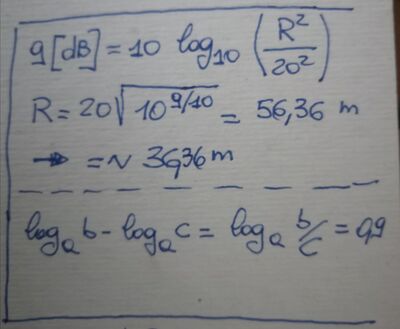 9 [dB] = 10 log₁₀ (R²/20²)
R = 20√10^9/10 = 56,36 m
→ = ~ 36,36 m
logₐ b - logₐ c = logₐ b/c = 0,9